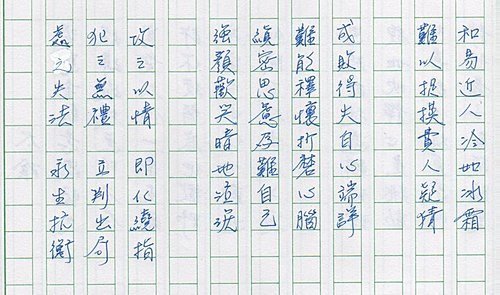 和易近人冷如冰霜
難以捉摸費人疑猜
成敗得失自心端詳
難能釋懷折磨心腦
縝密思慮及難自已
強顏歡笑暗地泣淚
攻之以情 即化繞指
犯之無禮 立判出局
為之失法 永生抗衡